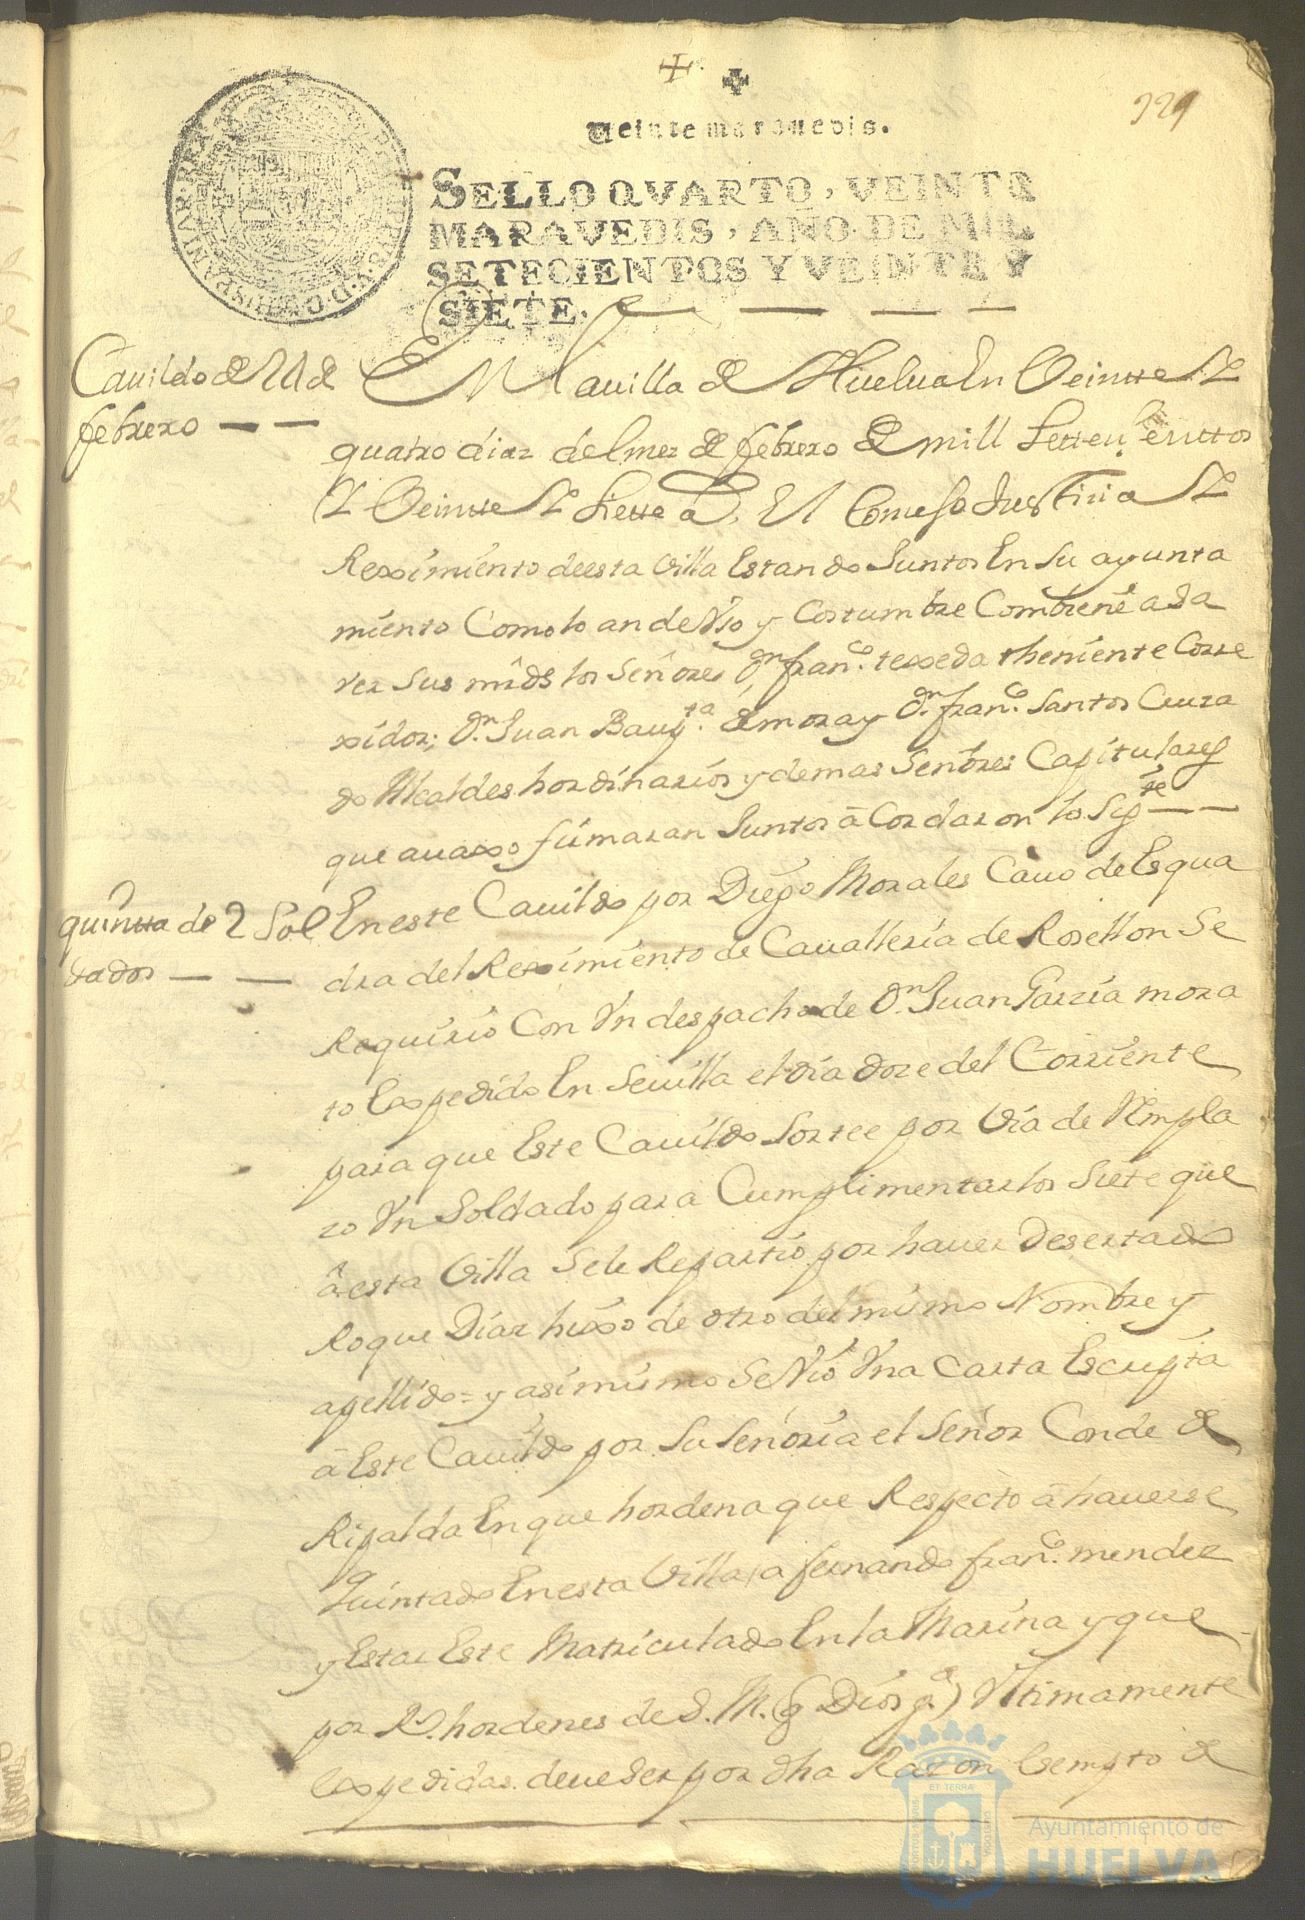 229
Veinte maravedis.
SELLO QVARTO, VEINTE
MARAVEDIS, AÑO DE MIL
SETECIENTOS Y VEINTE Y
SIETE.
Cavildo de 24 de
febrero
En la uilla de Huelua En Veintte Y
quatro dias del mes de febrero de mill Settezienttos
Y Veintte Y Siette a. El Consejo Justizia Y
Reximiento deesta Villa Estando Juntos En Su ayunta
miento Como lo an de Vso y Costumbre Combiene a sa
ver Sus mrds los Señores Dn. franco. texeda theniente Corre
xidor; Dn. Juan Baupta. de mora y Dn. franco. Santos Cruza
do Alcaldes hordinarios y demas Señores Capitulares
que auaxo firmaran Juntos acordaron lo Sigte
quintta de 2 Sol
dados
En este Cauildo por Diego Morales Cauo de Esqua
dra del Reximiento de Caualleria de Rosellon Se
Requirio Con Vn despacho de Dn. Juan Garzia mora
to Expedido En Seuilla el dia doze del Corriente
para que Este Cauildo Sortee por Via de Rempla
zo Vn Soldado para Cumplimentar los Siete que
a esta Villa Se le Repartio por hauer Desertado
Roque Diaz hixo de otro del mismo Nombre y
apellido = y asimismo Se Vio Vna Carta Escripta
a Este Cauildo por Su Señoria el Señor Conde de
Ripalda En que hordena que Respecto a hauerse
Quintado En esta Villa a fernando franco. mendez
y Estar Este Matriculado En la Marina y que
por Rs. hordenes de S. M. (q Dios ge.) Vltimamente
Expedidas deue Ser por dha Razon Exempto de
Ayuntamiento de
HUELVA